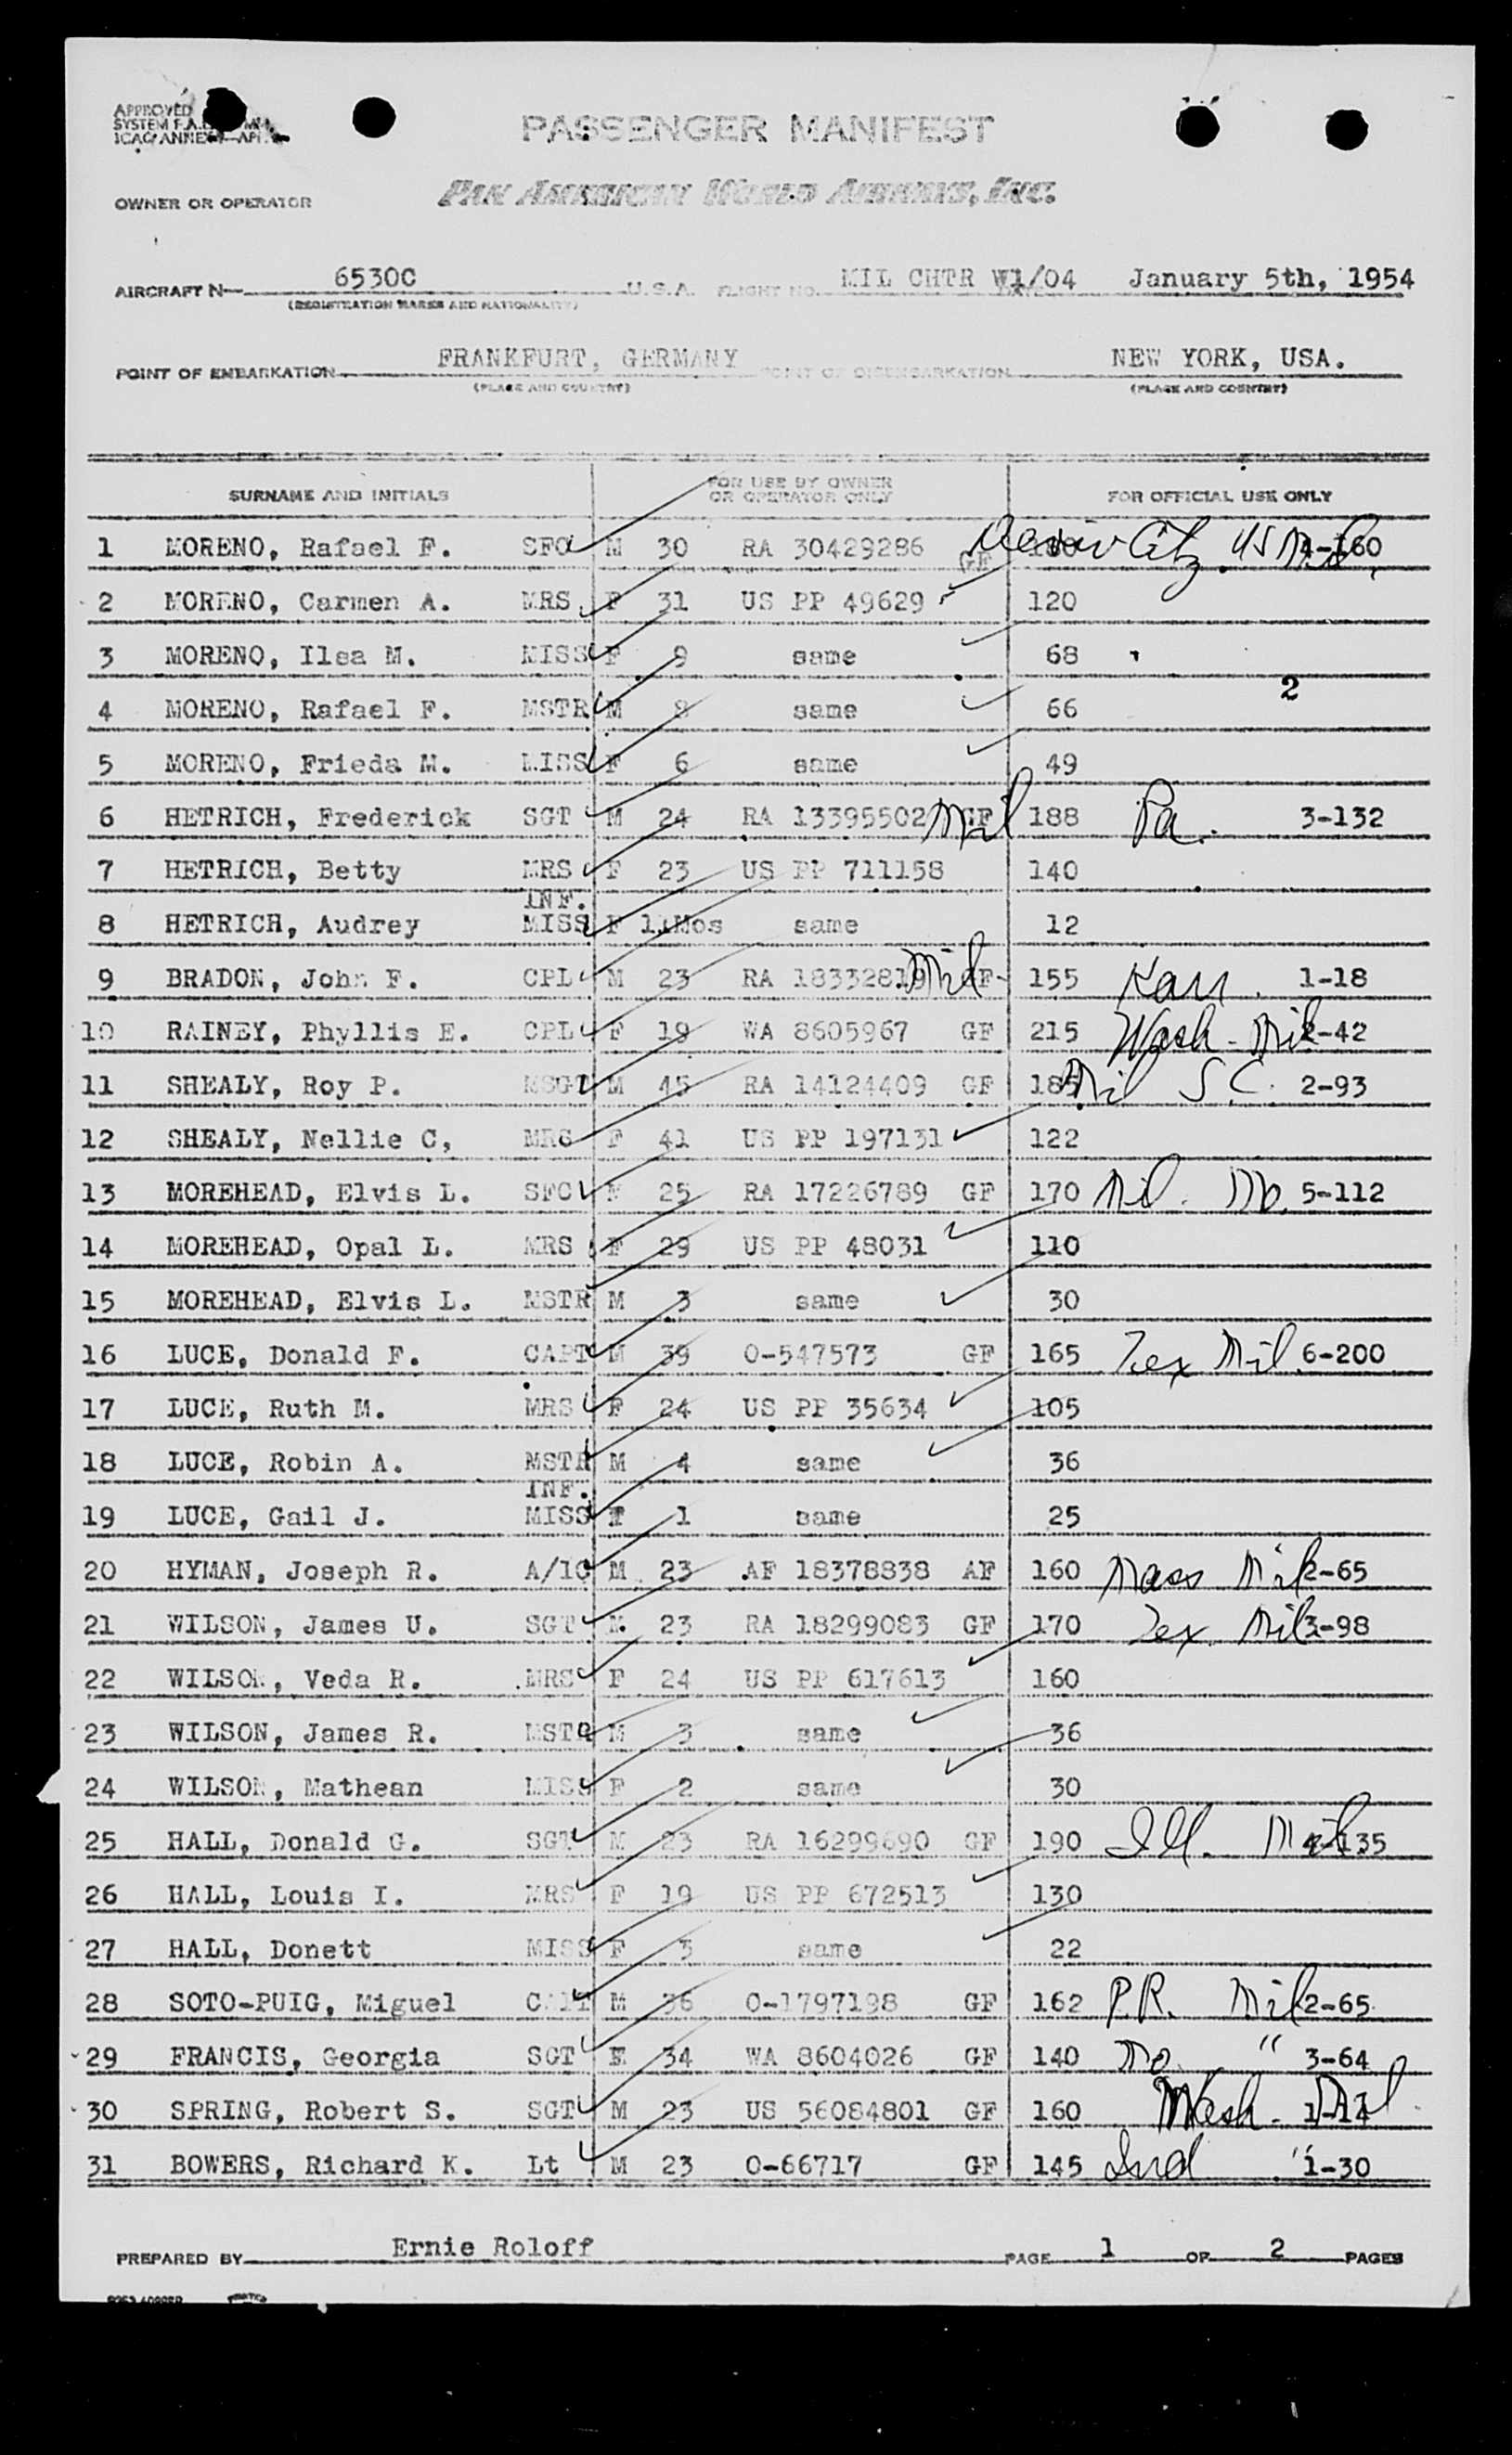 APPROVED
SYSTEM F.A.L.
ICAO ANNEX
PASSENGER MANIFEST
OWNER OR OPERATOR PAN AMERICAN WORLD AIRWAYS, INC.
AIRCRAFT N— 6530C U.S.A. FLIGHT NO. MIL CHTR W1/04 January 5th, 1954
(REGISTRATION MARKS AND NATIONALITY)
POINT OF EMBARKATION FRANKFURT, GERMANY POINT OF DISEMBARKATION NEW YORK, USA.
(PLACE AND COUNTRY) (PLACE AND COUNTRY)
SURNAME AND INITIALS FOR USE BY OWNER OR OPERATOR ONLY FOR OFFICIAL USE ONLY
1 MORENO, Rafael F. SFC M 30 RA 30429286 GF City. US Mil 4-160
2 MORENO, Carmen A. MRS F 31 US PP 49629 120
3 MORENO, Ilsa M. MISS F 9 same 68
2
4 MORENO, Rafael F. MSTR M 8 same 66
5 MORENO, Frieda M. MISS F 6 same 49
6 HETRICH, Frederick SGT M 24 RA 13395502 Mil GF 188 Pa. 3-132
7 HETRICH, Betty MRS F 23 US PP 711158 140
INF.
8 HETRICH, Audrey MISS F 11Mos same 12
9 BRADON, John F. CPL M 23 RA 18332819 Mil GF 155 Kan. 1-18
10 RAINEY, Phyllis E. CPL F 19 WA 8605967 GF 215 Wash - Mil 2-42
11 SHEALY, Roy P. MSGT M 45 RA 14124409 GF 185 Mil S.C. 2-93
12 SHEALY, Nellie C, MRS F 41 US PP 197131 122
13 MOREHEAD, Elvis L. SFC M 25 RA 17226789 GF 170 Mil. Mo. 5-112
14 MOREHEAD, Opal L. MRS F 29 US PP 48031 110
15 MOREHEAD, Elvis L. MSTR M 3 same 30
16 LUCE, Donald F. CAPT M 39 O-547573 GF 165 Tex Mil. 6-200
17 LUCE, Ruth M. MRS F 24 US PP 35634 105
18 LUCE, Robin A. MSTR M 4 same 36
INF.
19 LUCE, Gail J. MISS F 1 same 25
20 HYMAN, Joseph R. A/1C M 23 AF 18378838 AF 160 Mass Mil 2-65
21 WILSON, James U. SGT M 23 RA 18299083 GF 170 Tex. Mil 3-98
22 WILSON, Veda R. MRS F 24 US PP 617613 160
23 WILSON, James R. MSTR M 3 same 36
24 WILSON, Mathean MISS F 2 same 30
25 HALL, Donald G. SGT M 23 RA 16299690 GF 190 Ill. Mil 4-135
26 HALL, Louis I. MRS F 19 US PP 672513 130
27 HALL, Donett MISS F 3 same 22
28 SOTO-PUIG, Miguel CAPT M 36 O-1797198 GF 162 P.R. Mil 2-65
29 FRANCIS, Georgia SGT F 34 WA 8604026 GF 140 Mo. " 3-64
30 SPRING, Robert S. SGT M 23 US 56084801 GF 160 Wash - Mil 1-14
31 BOWERS, Richard K. Lt M 23 O-66717 GF 145 Ind " 1-30
PREPARED BY Ernie Roloff PAGE 1 OF 2 PAGES